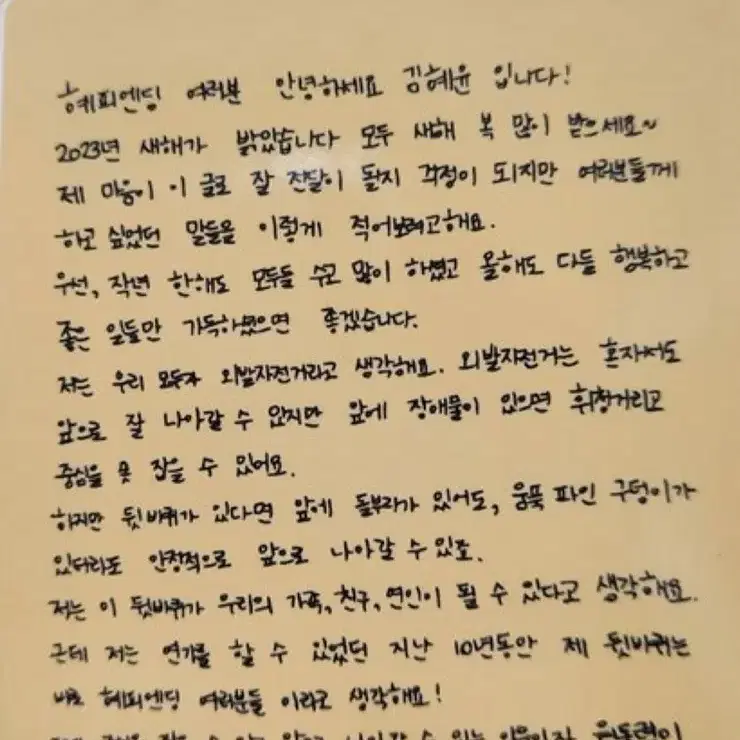 혜피엔딩 여러분 안녕하세요 김혜윤 입니다!
2023년 새해가 밝았습니다 모두 새해 복 많이 받으세요~
제 마음이 이 글로 잘 전달이 될지 걱정이 되지만 여러분들께
하고 싶었던 말들을 이렇게 적어보려고해요.
우선, 작년 한해도 모두들 수고 많이 하셨고 올해도 다들 행복하고
좋은 일들만 가득하셨으면 좋겠습니다.
저는 우리 모두가 외발자전거라고 생각해요. 외발자전거는 혼자서도
앞으로 잘 나아갈 수 있지만 앞에 장애물이 있으면 휘청거리고
중심을 못 잡을 수 있어요.
하지만 뒷바퀴가 있다면 앞에 돌부리가 있어도, 움푹 파인 구덩이가
있더라도 안정적으로 앞으로 나아갈 수 있죠.
저는 이 뒷바퀴가 우리의 가족, 친구, 연인이 될 수 있다고 생각해요.
근데 저는 연기를 할 수 있었던 지난 10년동안 제 뒷바퀴는
바로 혜피엔딩 여러분들 이라고 생각해요!